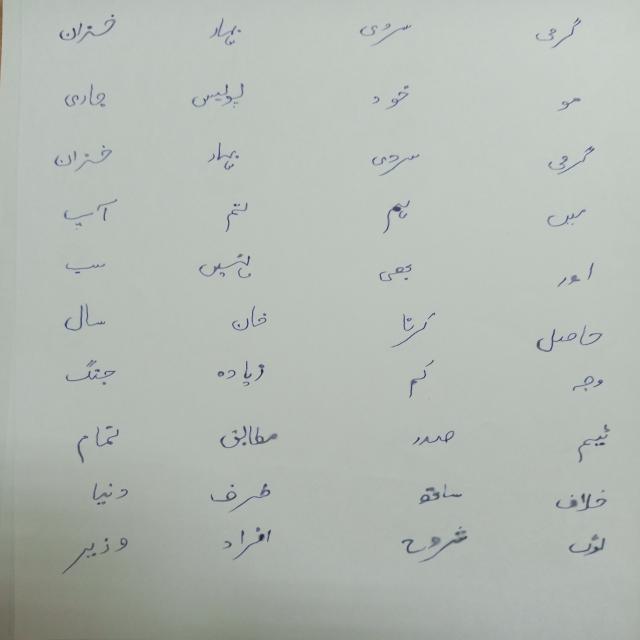 گرمی سردی بہار خزاں
ہو خود پولیس جاری
گرمی سردی بہار خزاں
میں ہم تم آپ
اور بھی نہیں سب
حاصل کرنا خان سال
وجہ کم زیادہ جنگ
ٹیم صدر مطابق تمام
خلاف ساتھ طرف دنیا
لوگ شروع افراد وزیر